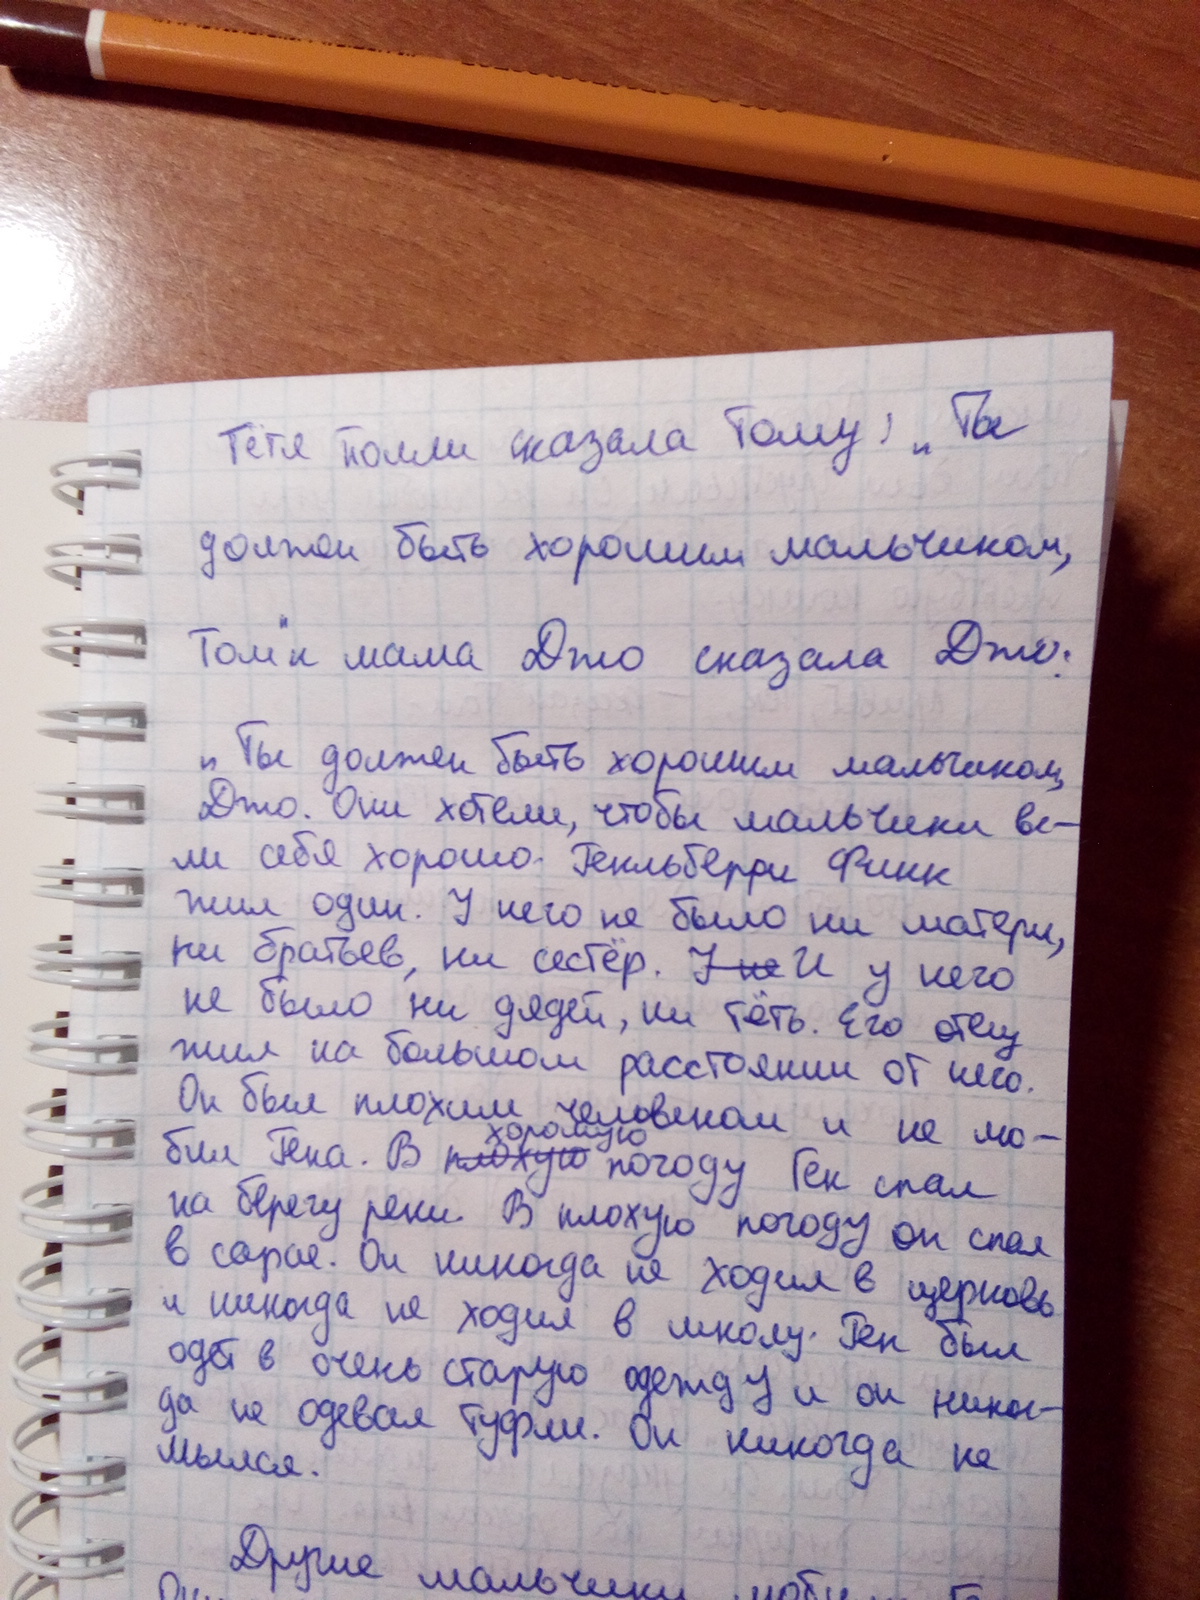 Тётя Полли сказала Тому: „Ты
должен быть хорошим мальчиком,
Том" и мама Джо сказала Джо:
„Ты должен быть хорошим мальчиком,
Джо. Они хотели, чтобы мальчики ве-
ли себя хорошо. Гекльберри Финн
жил один. У него не было ни матери,
ни братьев, ни сестёр. У не И у него
не было ни дядей, ни тёть. Его отец
жил на большом расстоянии от него.
Он был плохим человеком и не лю-
бил Гека. В плохую хорошую погоду Гек спал
на берегу реки. В плохую погоду он спал
в сарае. Он никогда не ходил в церковь
и никогда не ходил в школу. Гек был
одет в очень старую одежду и он никог-
да не одевал туфли. Он никогда не
мылся.
Другие мальчики любили